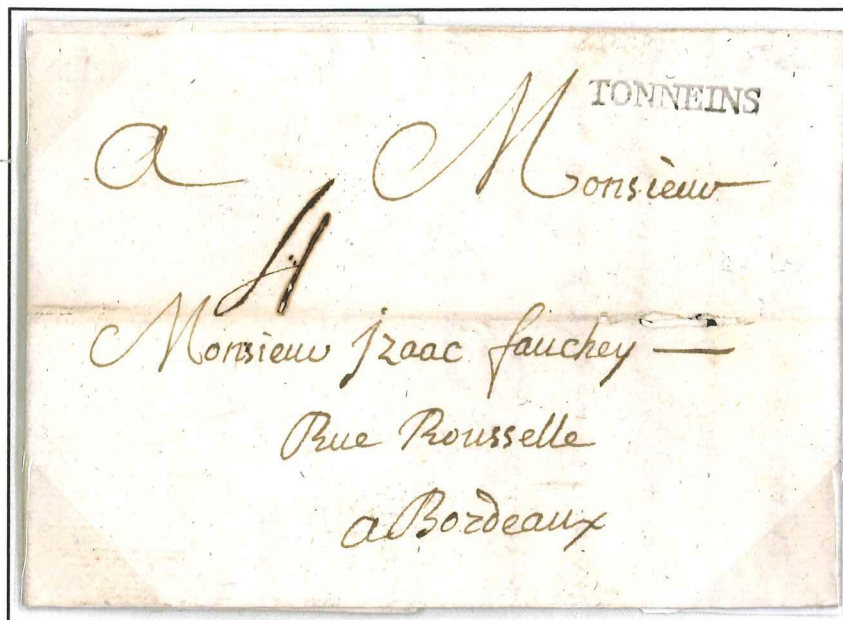 TONNEINS
a Monsieur
4
Monsieur Jzaac fauchey
Rue Rousselle
a Bordeaux